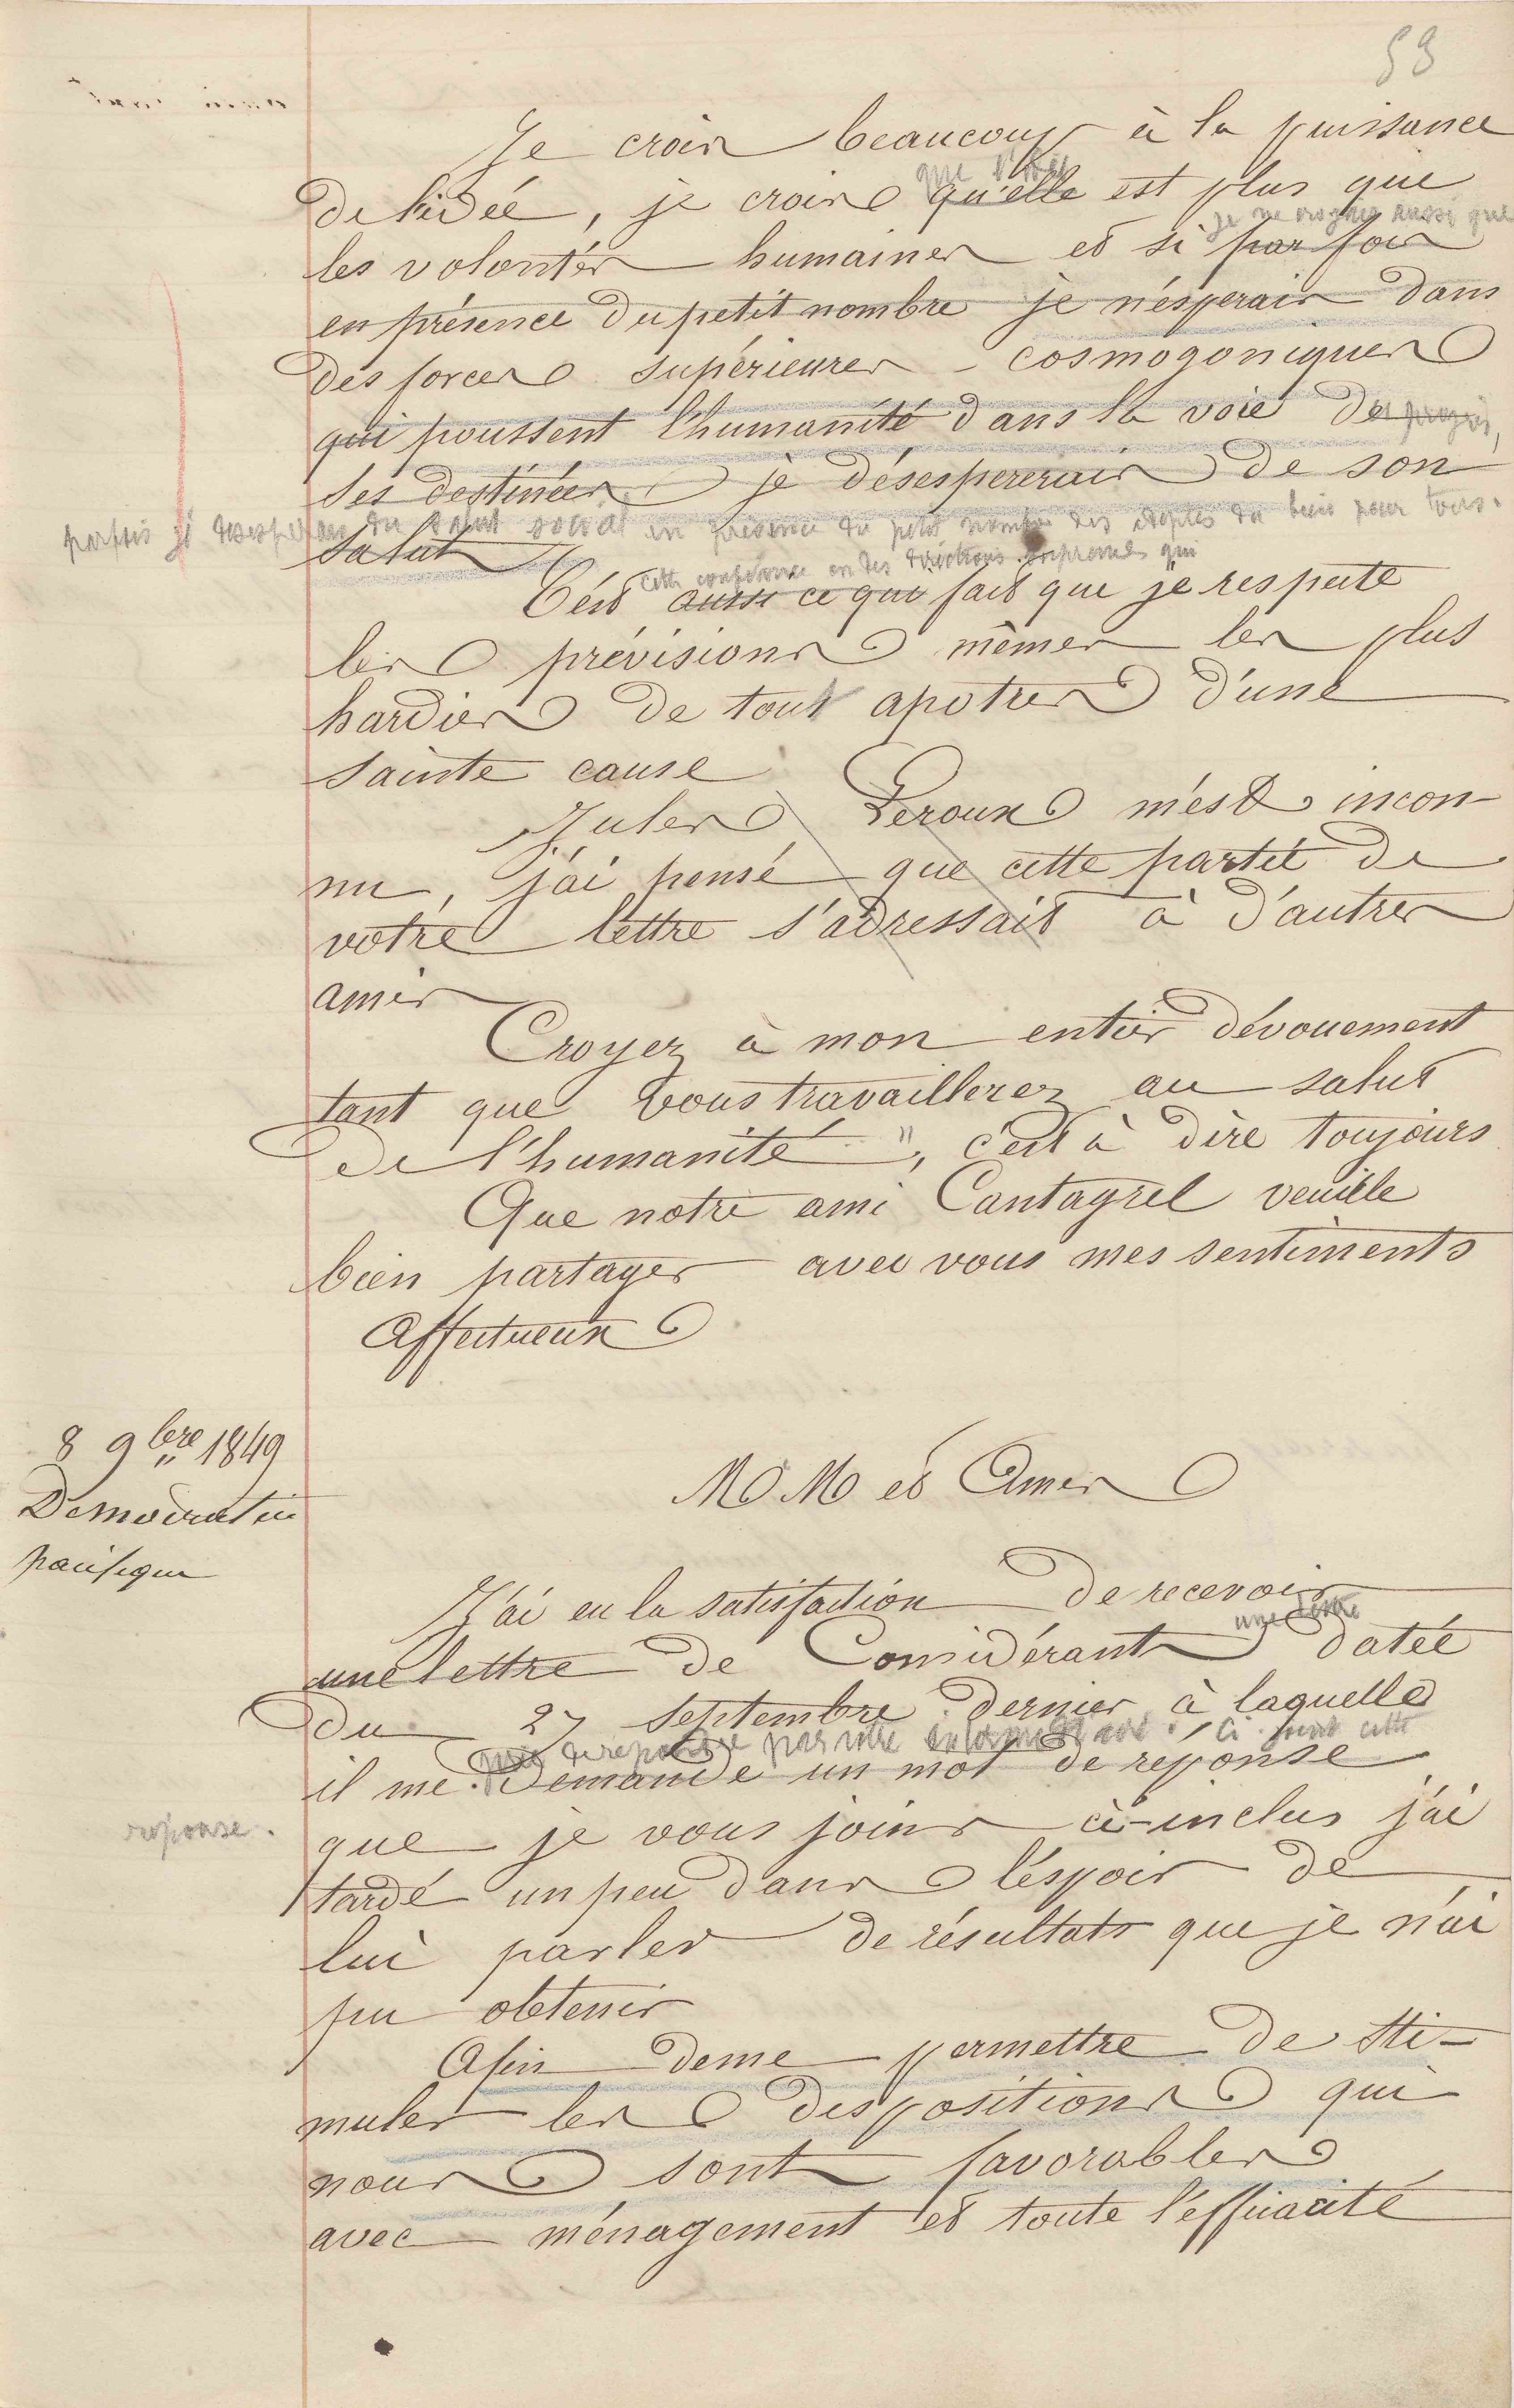 59
Je crois beaucoup à la puissance
que l'idée
de l'idée, je crois qu'elle est plus que
je ne croyais aussi que
les volontés humaines et si par fois
en présence du petit nombre je n'ésperais dans
des forces supérieures - cosmogoniques
qui poussent l'humanité dans la voie de progrès,
ses destinées je désespererais de son
parfois je desespérais du salut social en présence du petit nombre des adeptes du bien pour tous.
salut
cette confiance en des directions suprêmes qui
C'est aussi ce qui fait que je respecte
les prévisions mêmes les plus
hardies de tout apotres d'une
sainte cause
Jules Leroux m'est incon-
nu, j'ai pensé que cette partie de
votre lettre s'adressait à d'autres
amis
Croyez à mon entier dévouement
tant que vous travaillerez au salut
de l'humanité", c'est à dire toujours
Que notre ami Cantagrel veuille
bien partager avec vous mes sentiments
Affectueux
8 9bre 1849
Democratie
pacifique
M M et Amis
J'ai eu la satisfaction de recevoir
une lettre
une lettre de Considérant datée
du 27 septembre dernier à laquelle
de repondre par votre ci joint cette
il me demande un mot de reponse
reponse.
que je vous joins ci-inclus j'ai
tardé un peu dans l'éspoir de
lui parler de résultats que je n'ai
pu obtenir
Afin de me permettre de sti-
muler les dispositions qui
nous sont favorables
avec ménagement et toute l'efficacité